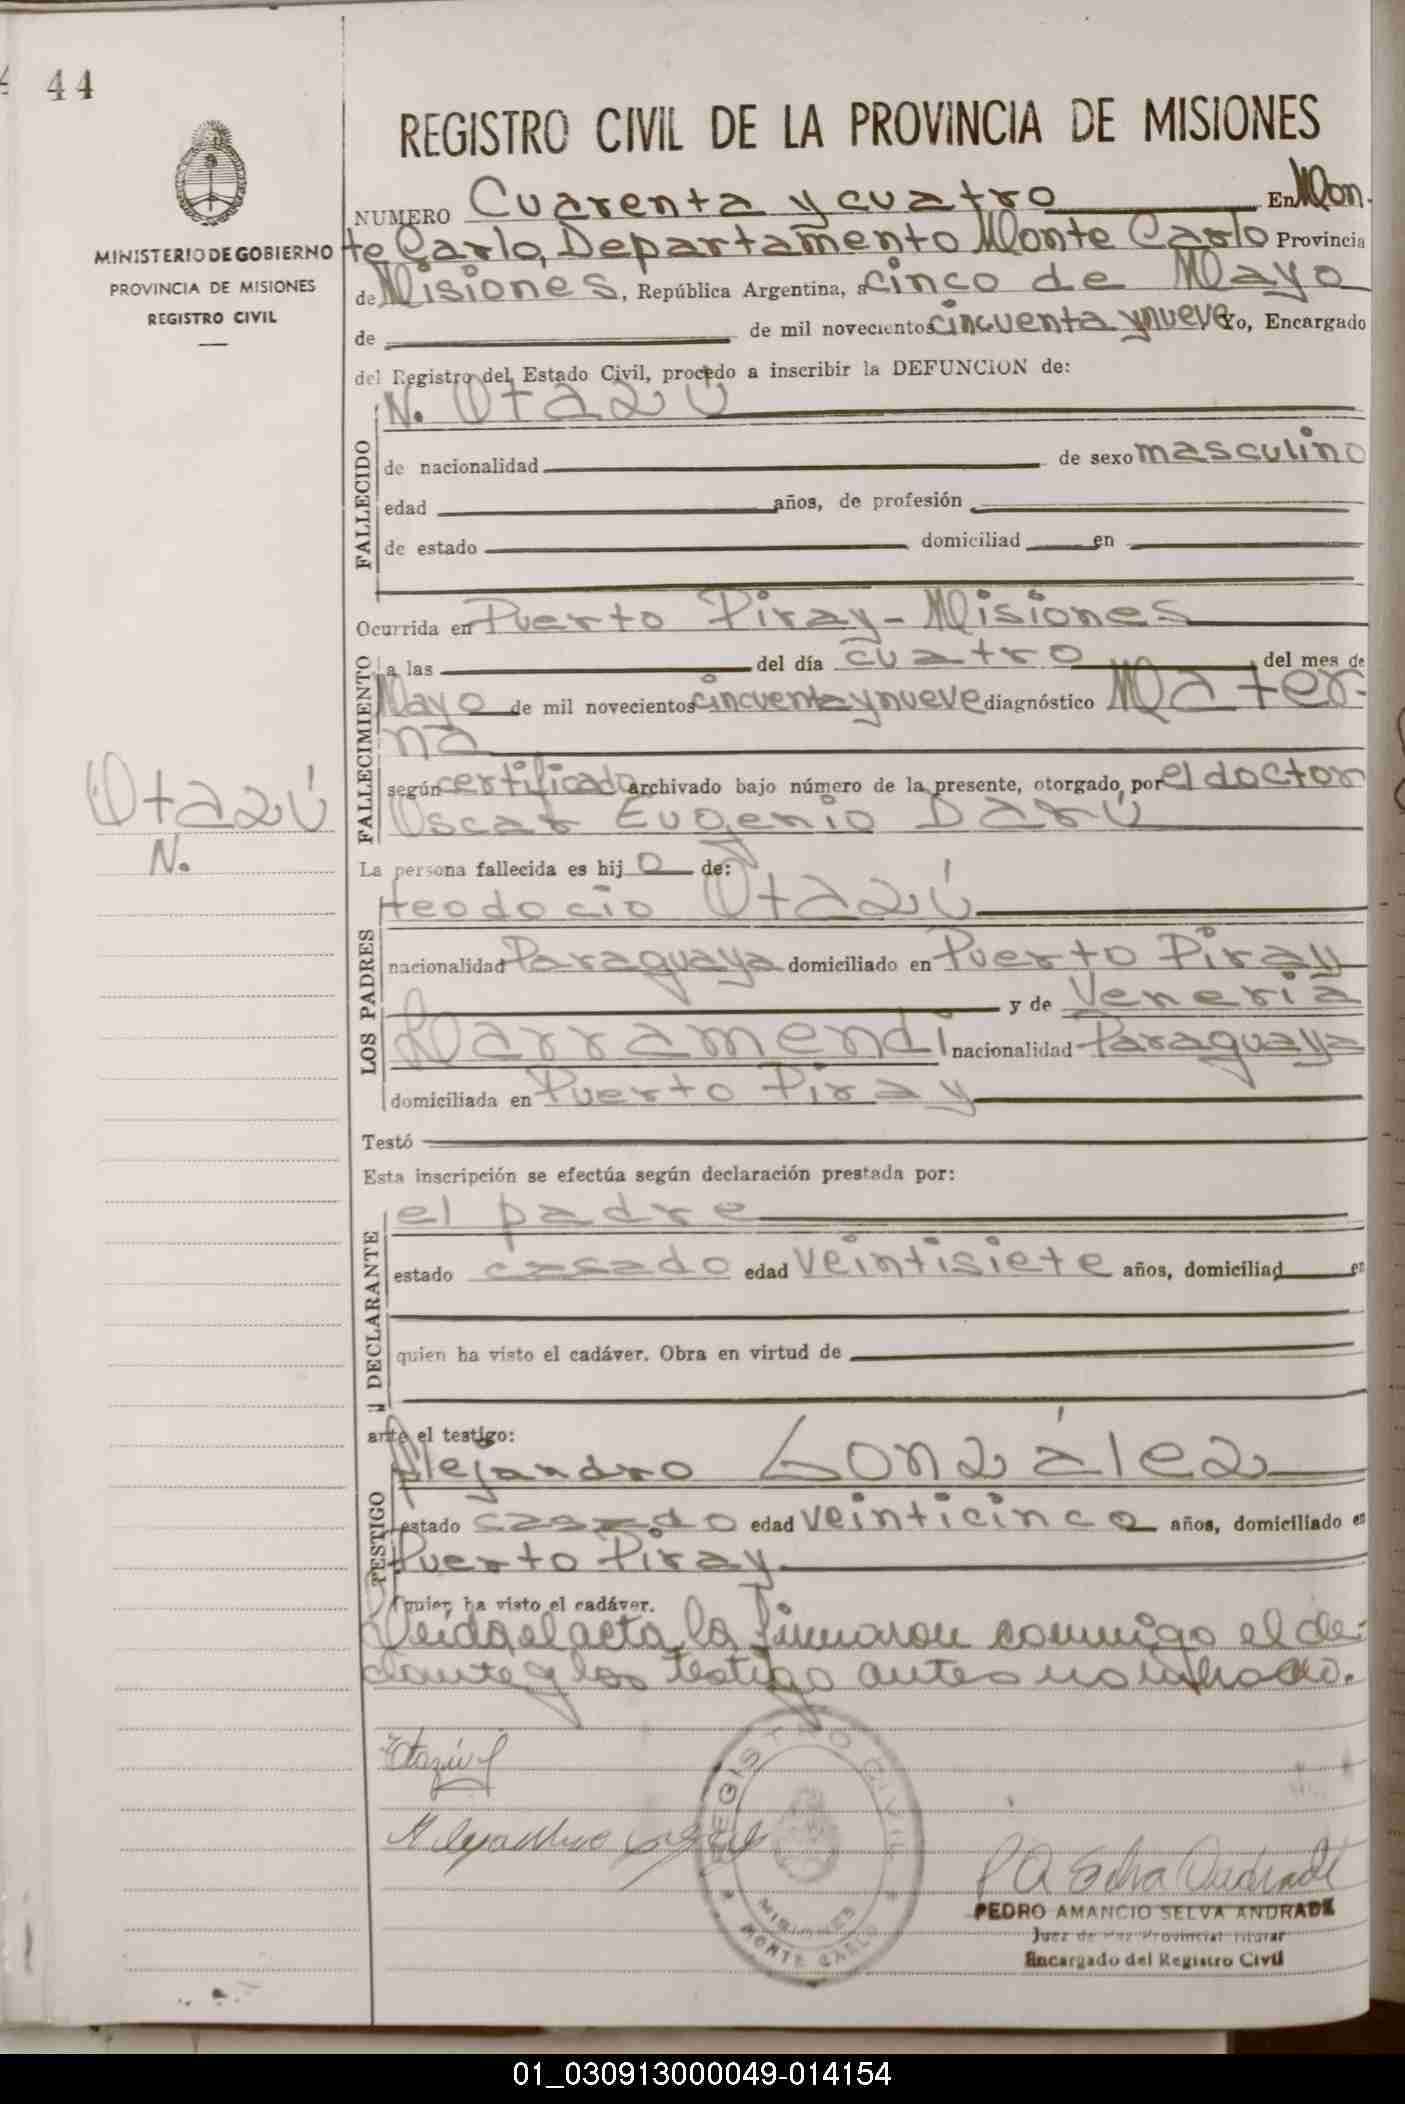 44
REGISTRO CIVIL DE LA PROVINCIA DE MISIONES
MINISTERIO DE GOBIERNO
PROVINCIA DE MISIONES
REGISTRO CIVIL
NUMERO Cuarenta y cuatro En Mon-
te Carlo, Departamento Monte Carlo Provincia
de Misiones, República Argentina, a cinco de Mayo
de de mil novecientos cincuenta y nueve Yo, Encargado
del Registro del Estado Civil, procedo a inscribir la DEFUNCION de:
N. Otazú
FALLECIDO
de nacionalidad de sexo masculino
edad años, de profesión
de estado domiciliad en
Ocurrida en Puerto Piray - Misiones
FALLECIMIENTO
a las del día cuatro del mes de
Mayo de mil novecientos cincuenta y nueve diagnóstico Mater-
na
según certificado archivado bajo número de la presente, otorgado por el doctor
Oscar Eugenio Darú
Otazú
N.
La persona fallecida es hijo de:
LOS PADRES
teodocio Otazú
nacionalidad Paraguaya domiciliado en Puerto Piray
y de Veneria
Larramendi nacionalidad Paraguaya
domiciliada en Puerto Piray
Testó
Esta inscripción se efectúa según declaración prestada por:
DECLARANTE
el padre
estado casado edad veintisiete años, domiciliad en
quien ha visto el cadáver. Obra en virtud de
ante el testigo:
TESTIGO
Alejandro González
estado casado edad veinticinco años, domiciliado en
Puerto Piray
quien ha visto el cadáver.
Leida el acta, la firmaron conmigo el de-
clarante y los testigo antes nombrado.
Otazú
REGISTRO CIVIL
MISIONES
MONTE CARLO
P A Selva Andrade
PEDRO AMANCIO SELVA ANDRADE
Juez de Paz Provincial Titular
Encargado del Registro Civil
01_030913000049-014154